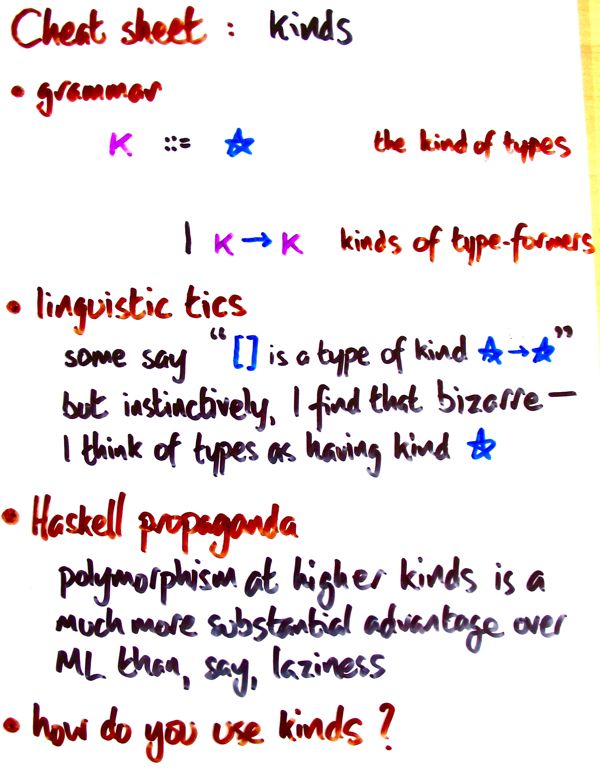 Cheat sheet : kinds
• grammar
K ::= ☆ the kind of types
| K → K kinds of type-formers
• linguistic tics
some say “[] is a type of kind ☆→☆”
but instinctively, I find that bizarre —
I think of types as having kind ☆
• Haskell propaganda
polymorphism at higher kinds is a
much more substantial advantage over
ML than, say, laziness
• how do you use kinds ?